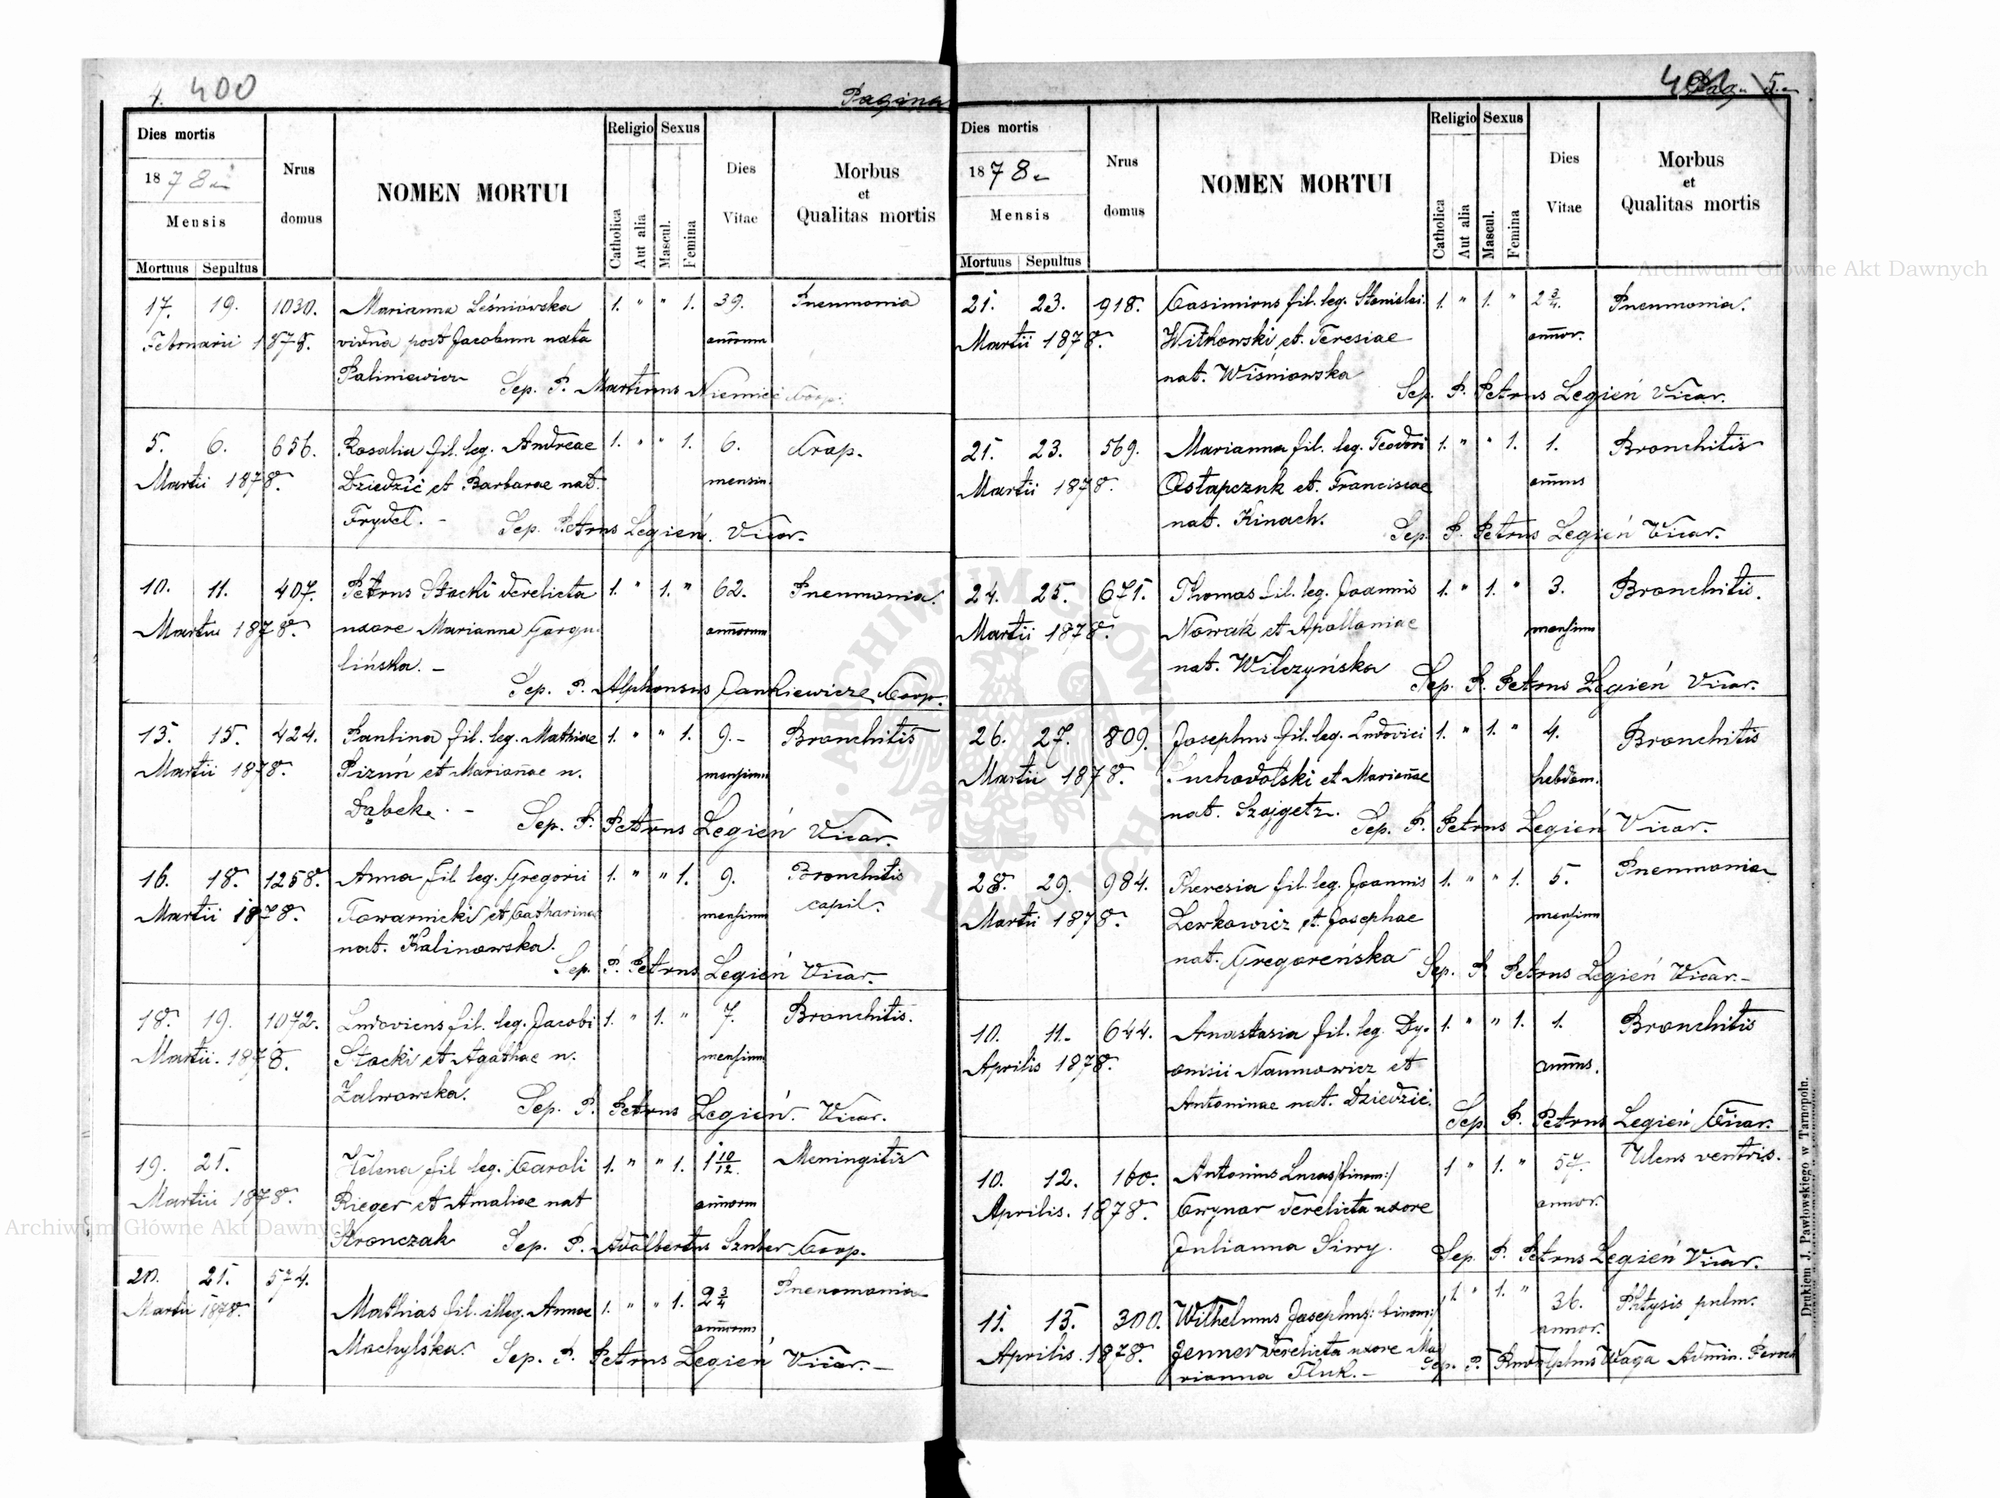 4. 400
Pagina
Dies mortis
1878
Mensis
Mortuus Sepultus
Nrus domus
NOMEN MORTUI
Religio
Catholica
Aut alia
Sexus
Mascul.
Femina
Dies Vitae
Morbus
et
Qualitas mortis
17. 19. 1030. Marianna Leśniowska 1. " " 1. 39. Pneumonia
Februarii 1878. vidua post Jacobum nata annorum
Paliniewicz Sep. P. Martinus Niemiec Coop.
5. 6. 656. Rosalia fil. leg. Andreae 1. " " 1. 6. Crap.
Martii 1878. Dziedzić et Barbarae nat. mensiu
Frydel. - Sep. Petrus Legień. Vicar.
10. 11. 407. Petrus Stocki derelicta 1. " 1. " 62. Pneumonia.
Martii 1878. uxore Marianna Gorgu annorum
lińska. - Sep. P. Alphonsus Jankiewicz Coop.
13. 15. 424. Paulina fil. leg. Mathiae 1. " " 1. 9.- Bronchitis
Martii 1878. Pizuń et Marianae n. mensium
Dąbek. - Sep. P. Petrus Legień Vicar.
16. 18. 1258. Anna fil. leg. Gregorii 1. " " 1. 9. Bronchitis
Martii 1878. Towarnicki et Catharina mensium capil.
nat. Kalinowska. Sep. P. Petrus Legień Vicar.
18. 19. 1072. Ludovicus fil. leg. Jacobi 1. " 1. " 7. Bronchitis.
Martii. 1878. Stocki et Agathae n. mensium
Zalwowska. Sep. P. Petrus Legień. Vicar.
19. 21. Helena fil leg. Caroli 1. " " 1. 1 10/12. Meningitis
Martii 1878. Rieger et Amaliae nat annorum
Stronczak Sep. P. Adalbertus Szuber Coop.
20. 21. 574. Mathias fil. illeg. Annae 1. " " 1. 2 3/4 Pneumonia
Martii 1878. Machylska. annorum
Sep. P. Petrus Legień Vicar. -
401 Pag. 5.
Dies mortis
1878
Mensis
Mortuus Sepultus
Nrus domus
NOMEN MORTUI
Religio
Catholica
Aut alia
Sexus
Mascul.
Femina
Dies Vitae
Morbus
et
Qualitas mortis
21. 23. 918. Casimirus fil. leg. Stanislai 1. " 1. " 2 3/4. Pneumonia.
Martii 1878. Witkowski et Teresiae annor.
nat. Wiśniowska Sep. P. Petrus Legień Vicar.
21. 23. 569. Marianna fil. leg. Teodori 1. " " 1. 1. Bronchitis
Martii 1878. Ostapczuk et. Franciscae annus
nat. Kinach. Sep. P. Petrus Legień Vicar.
24. 25. 671. Thomas fil. leg. Joannis 1. " 1. " 3. Bronchitis.
Martii 1878. Nowak et Apolloniae mensium
nat. Wilczyńska Sep. P. Petrus Legień Vicar.
26. 27. 809. Josephus fil. leg. Ludovici 1. " 1. " 4. Bronchitis
Martii 1878. Suchodolski et Marianae hebdom.
nat. Szajgetz. Sep. P. Petrus Legień Vicar.
28. 29. 984. Theresia fil. leg. Joannis 1. " " 1. 5. Pneumonia
Martii 1878. Lewkowicz et. Josephae mensium
nat. Gregoreńska Sep. P. Petrus Legień Vicar. -
10. 11. 644. Anastasia fil. leg. Dy- 1. " " 1. 1. Bronchitis
Aprilis 1878. onisii Naumowicz et annus.
Antoninae nat. Dziedzić. Sep. P. Petrus Legień Vicar.
10. 12. 160. Antonius Lucas /:binom:/ 1 " 1. " 57. Ulcus ventris.
Aprilis. 1878. Cwynar derelicta uxore annor.
Julianna Siwy. Sep. P. Petrus Legień Vicar.
11. 13. 300. Wilhelmus Josephus /:binom:/ 1. " 1. " 36. Phtysis pulm.
Aprilis. 1878. Jenner derelicta uxore Ma annor.
rianna Fluk. - Sep. P. Rudolphus Waga Admin. Paroch
Drukiem J. Pawłowskiego w Tarnopolu.
Archiwum Główne Akt Dawnych
Archiwum Główne Akt Dawnych
ARCHIWUM GŁÓWNE AKT DAWNYCH